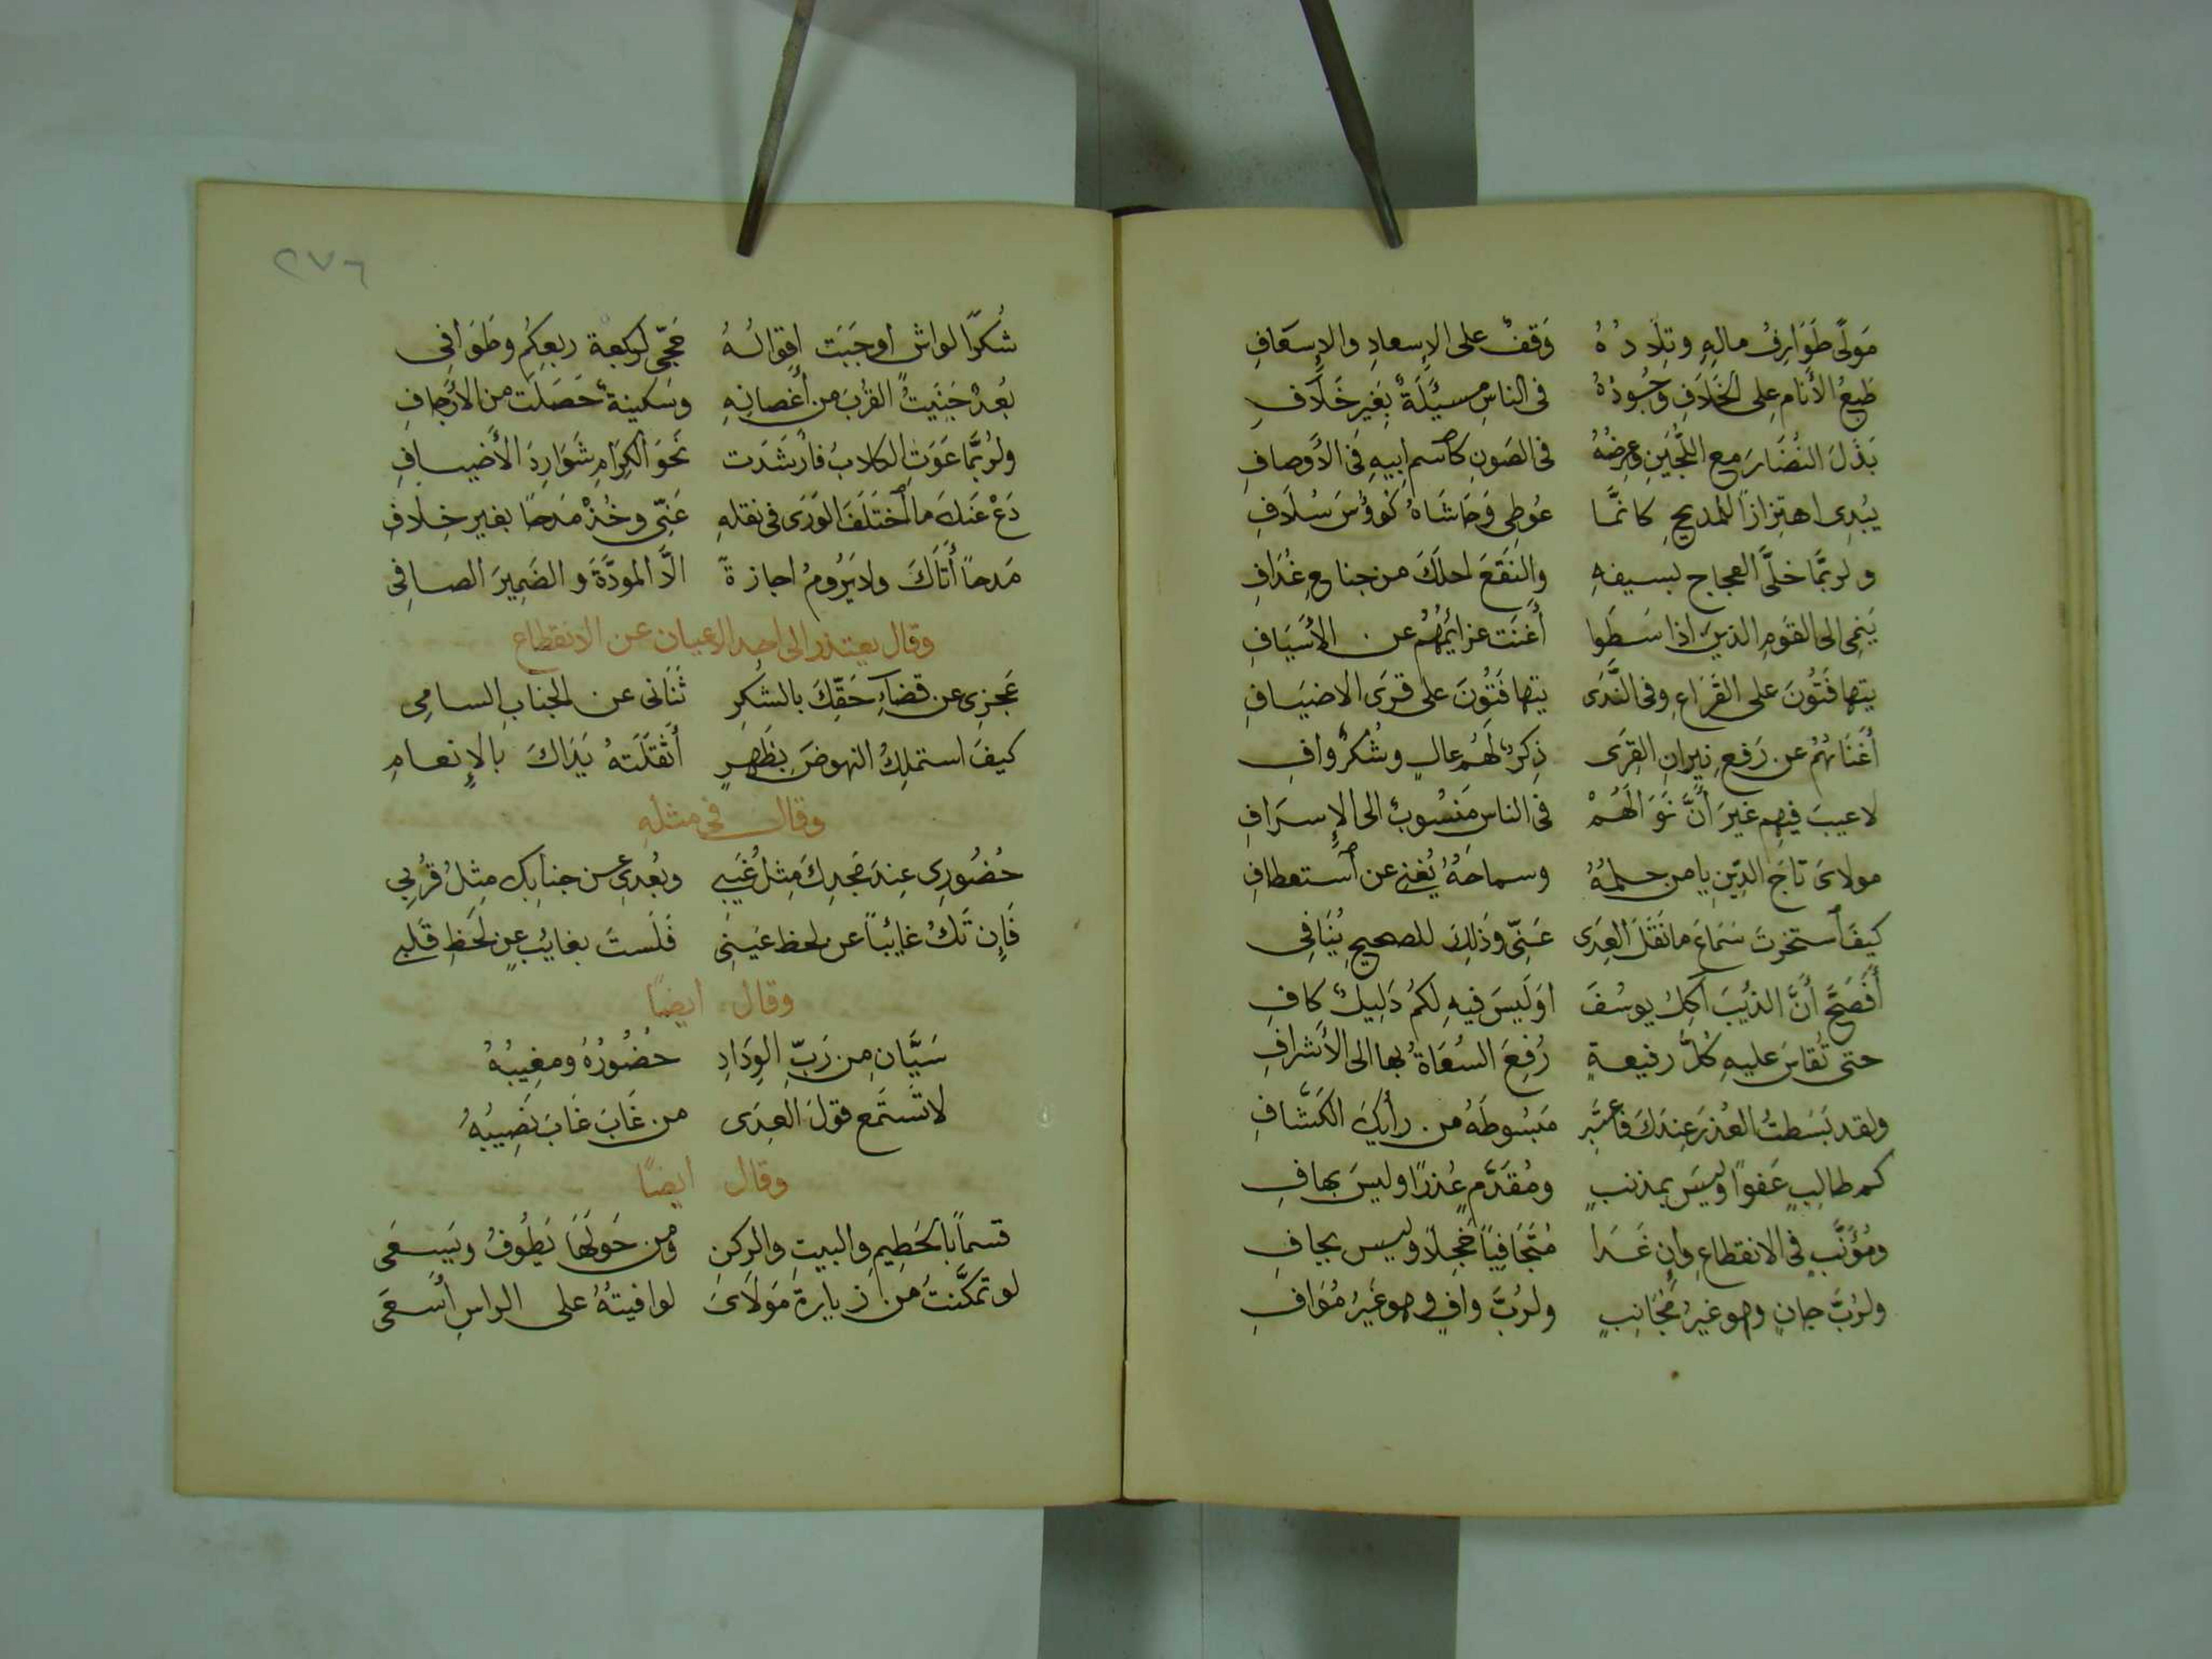 مَولًى طَوَارِفُ مالِهِ وتِلَادُهُ وَقفٌ على الإِسعادِ والإِسعَافِ
طَبعُ الأَنام على الخَلَافِ وجُودُهُ فى الناسِ مسئَلَةٌ بِغَيرِ خَلَافِ
بَذَلَ النُضَارَ مع اللُّجَينِ وعِرضُهُ فى الصَونِ كاسم ابيهِ فى الأَوصافِ
يُبدِى اهتِزازًا للمديحِ كانَّمَا عُوطِى وَحَاشَاهُ كُؤُسَ سُلَافِ
ولربَّمَا خلَّى العجاج بسيفهِ والنَقعَ احلَكَ من جناحِ غُدَافِ
يَنمِى الى القَومِ الذينَ اذا سَطَوا أَغنَت عزائمُهُم عن الأَسيَافِ
يتهافَتُونَ على القَرَاعِ وفى النَّدَى يتهافَتُونَ على قِرَى الاضيَافِ
أَغنَاهُمُ عن رَفعِ نِيرانِ القِرَى ذِكرٌ لَهُم عالٍ وشُكرٌ وافِ
لا عيبَ فيهِم غيرَ أَنَّ نَوَالَهُمْ فى الناس مَنسُوبٌ الى الإِسرَافِ
مولاىَ تاجَ الدِّينِ يا من حلمُهُ وسماحَهُ يُغنى عن استعطافِ
كيفَ استخرتَ سَمَاعَ ما نَقَلَ العِدَى عَنِّى وذَلِكَ للصحيحِ يُنَافِى
أَفَصَحَّ أَنَّ الذيبَ آكِلُ يوسُفَ اوَلَيسَ فيهِ لكمُ دَلِيلٌ كافِ
حتى تُقاسَ عليهِ كُلُّ رفيعةٍ رُفِعَ السُعَاةُ بها الى الأَشرافِ
ولقد بَسَطتُ العُذرَ عِندَكَ فاعتَبِر مَبسُوطَهُ من رأيِكَ الكَشَّافِ
كم طالِبٍ عَفوًا وليسَ بمذنبٍ ومُقَدِّمٍ عُذرًا وليسَ بهافِ
ومُؤَنَّبٍ فى الانقطاعِ وإِن غَدَا مُتَجَافِيًا خَجِلًا وليس بجافِ
ولرُبَّ جانٍ وهو غيرُ مُجَانِبٍ ولرُبَّ وافٍ وهو غَيرُ مُوَافِ
٢٧٦
شُكرًا لواشٍ اوجَبَت اقوالُهُ حَجِّى لكعبة ربعِكُم وطَوَافِى
بُعدٌ جَنَيتُ القُربَ من أَغصانِهِ وسَكينةٌ حَصَلَت من الأرجافِ
ولرُبَّمَا عَوَتِ الكلابُ فارشَدَت نَحوَ الكِرَامِ شَوَارِدَ الأَضيافِ
دَع عَنكَ ما اختَلَفَ الوَرَى فى نقلهِ عَنِّى وخُذْ مَدحًا بغير خِلافِ
مَدحًا أَتَاكَ ولا يَرُومُ اجازةً الَّا المودَّةَ والضَمِيرَ الصافِى
وقال يعتذر الى احد الاعيان عن الانقطاع
عَجزِى عن قضآءِ حَقِّكَ بالشكرِ ثَنَانى عن الجنابِ السامِى
كيفَ استملِكُ النهوضَ بِظَهرٍ أَثقَلَتهُ يَدَاكَ بالإِنعامِ
وقال فى مثلهِ
حُضُورِى عِندَ مَجدِكَ مِثلُ غَيبى وبُعدِى عن جنابِكِ مِثلُ قُربِى
فَإِن تَكُ غايئبًا عن لحظ عَينِى فَلَستَ بغايبٍ عن لَحظِ قَلبى
وقال ايضًا
سَيَّانِ من رَبِّ الوِدَادِ حُضُورُهُ ومغِيبُهُ
لا تَستَمع قولَ العِدَى من غَابَ غَابَ نَصِيبُهُ
وقال ايضًا
قسمًا بالحَطِيمِ والبيتِ والركنِ ومن حَولَهَا يَطُوفُ ويَسعَى
لو تمكَّنتُ من زيارة مَولَاىَ لوافيتُهُ على الراسِ أَسعَى